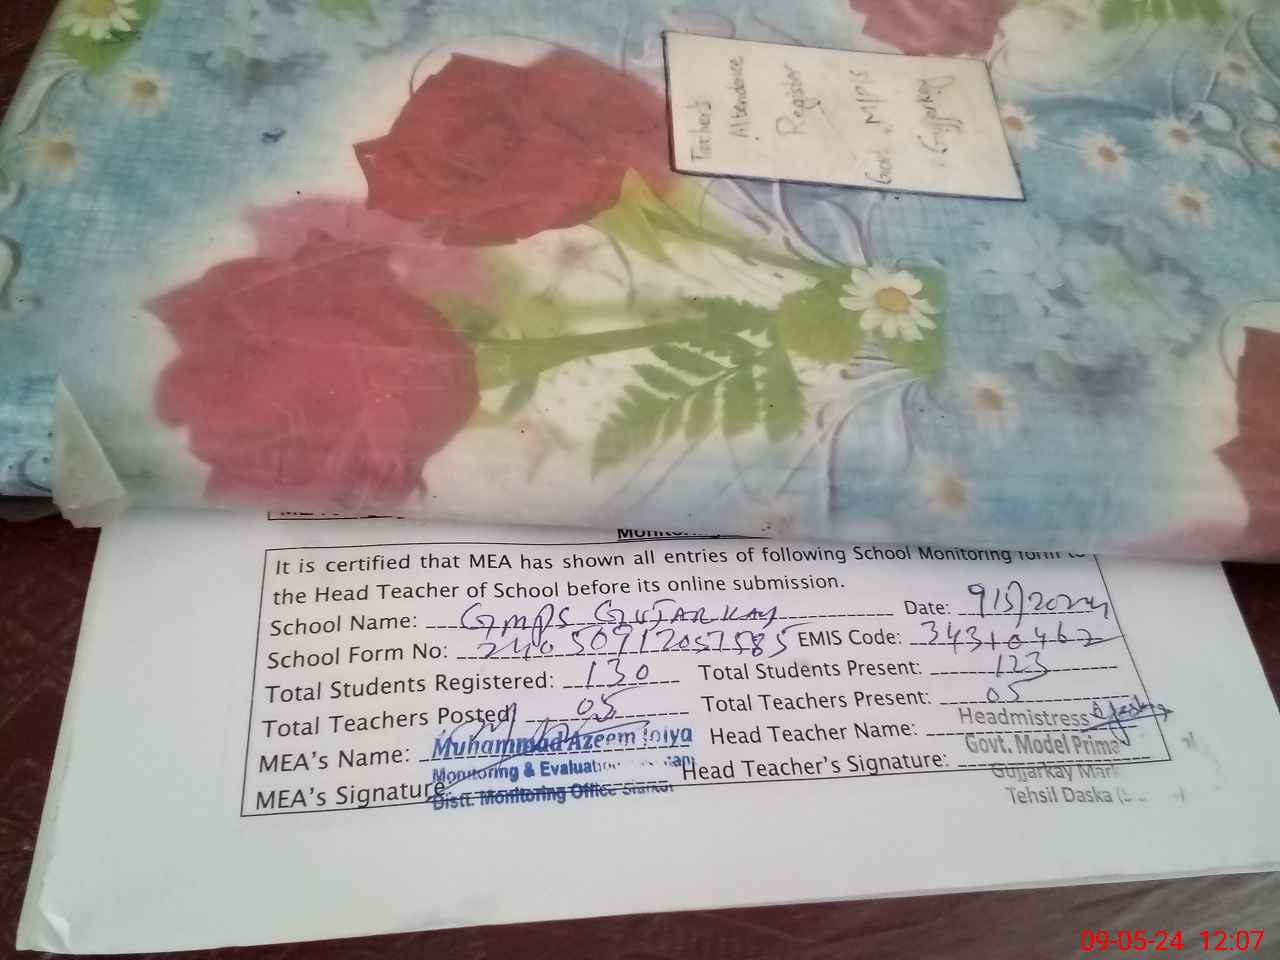 Teacher's
Attendence
Register
Govt. M/P/S
Gujjarkay
It is certified that MEA has shown all entries of following School Monitoring form to
the Head Teacher of School before its online submission.
School Name: GMPS GUJAR KAY Date: 9/5/2024
School Form No: EMIS Code: 34310462
Total Students Registered: 130 Total Students Present: 123
Total Teachers Posted 05 Total Teachers Present: 05
MEA's Name: Muhammad Azeem Head Teacher Name: Headmistress
Monitoring & Govt. Model
MEA's Signature Head Teacher's Signature:
Distt. Monitoring Office Gujjarkay
Tehsil Daska
09-05-24 12:07